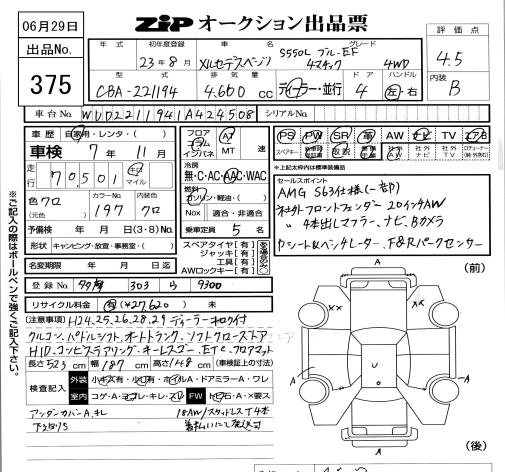 06月29日
ZIP オークション出品票
出品No.
375
年式 初年度登録 車名 グレード
23年8月 メルセデスベンツ S550L ブルーEF 4マチック 4WD
型式 排気量 ドア ハンドル
CBA-221194 4.600cc ディーラー・並行 4 左・右
評価点
4.5
内装
B
車台No. WDD2211941A424508 シリアルNo.
車歴 自家用・レンタ・( )
車検 7年11月
走行 70,501 キロ マイル
色 クロ (元色) カラーNo. 197 内装色 クロ
予備検 年 月 日 (3・8) No.
形状 キャンピング・放宣・事務室・( )
名変期限 年 月 日迄
フロア コラム インパネ AT MT 速
冷房
無・C・AC・AAC・WAC
燃料
ガソリン・軽油・( )
Nox 適合・非適合
乗車定員 5名
スペアタイヤ[有]
ジャッキ[有]
工具[有]
AWロックキー[有]
PS PW SR 革 AW ナビ TV エアB
※上記太枠内は標準装備品
セールスポイント
AMG S63仕様(一部)
社外フロントフェンダー 20インチAW
〃 4本出しマフラー、ナビ、Bカメラ
クーシート&ベンチレーター、F&Rパークセンサー
登録No. 303 ら 9300
リサイクル料金 有 ¥27,620 未
(注意事項) H24.25.26.28.29 ディーラー記録付
クルコン、パドルシフト、オートトランク、ソフトクローズドア
HID、コンビステアリング、キーレスゴー、ETC、フロアマット
長さ523cm 幅187cm 高さ148cm (車検証上の寸法)
検査記入 外装 小キズ有・小凹有・ホイルA・ドアミラーA・ワレ
室内 コゲ・A・ヨゴレ・キレ・スレ FW トビ石・A・×要ス
アンダーカバーA、キレ
下回りS
18AW/スタッドレスT4本
着払いにて発送可
※ご記入の際はボールペンで強くご記入下さい。
(前)
A
××
A
A
U
A
(後)